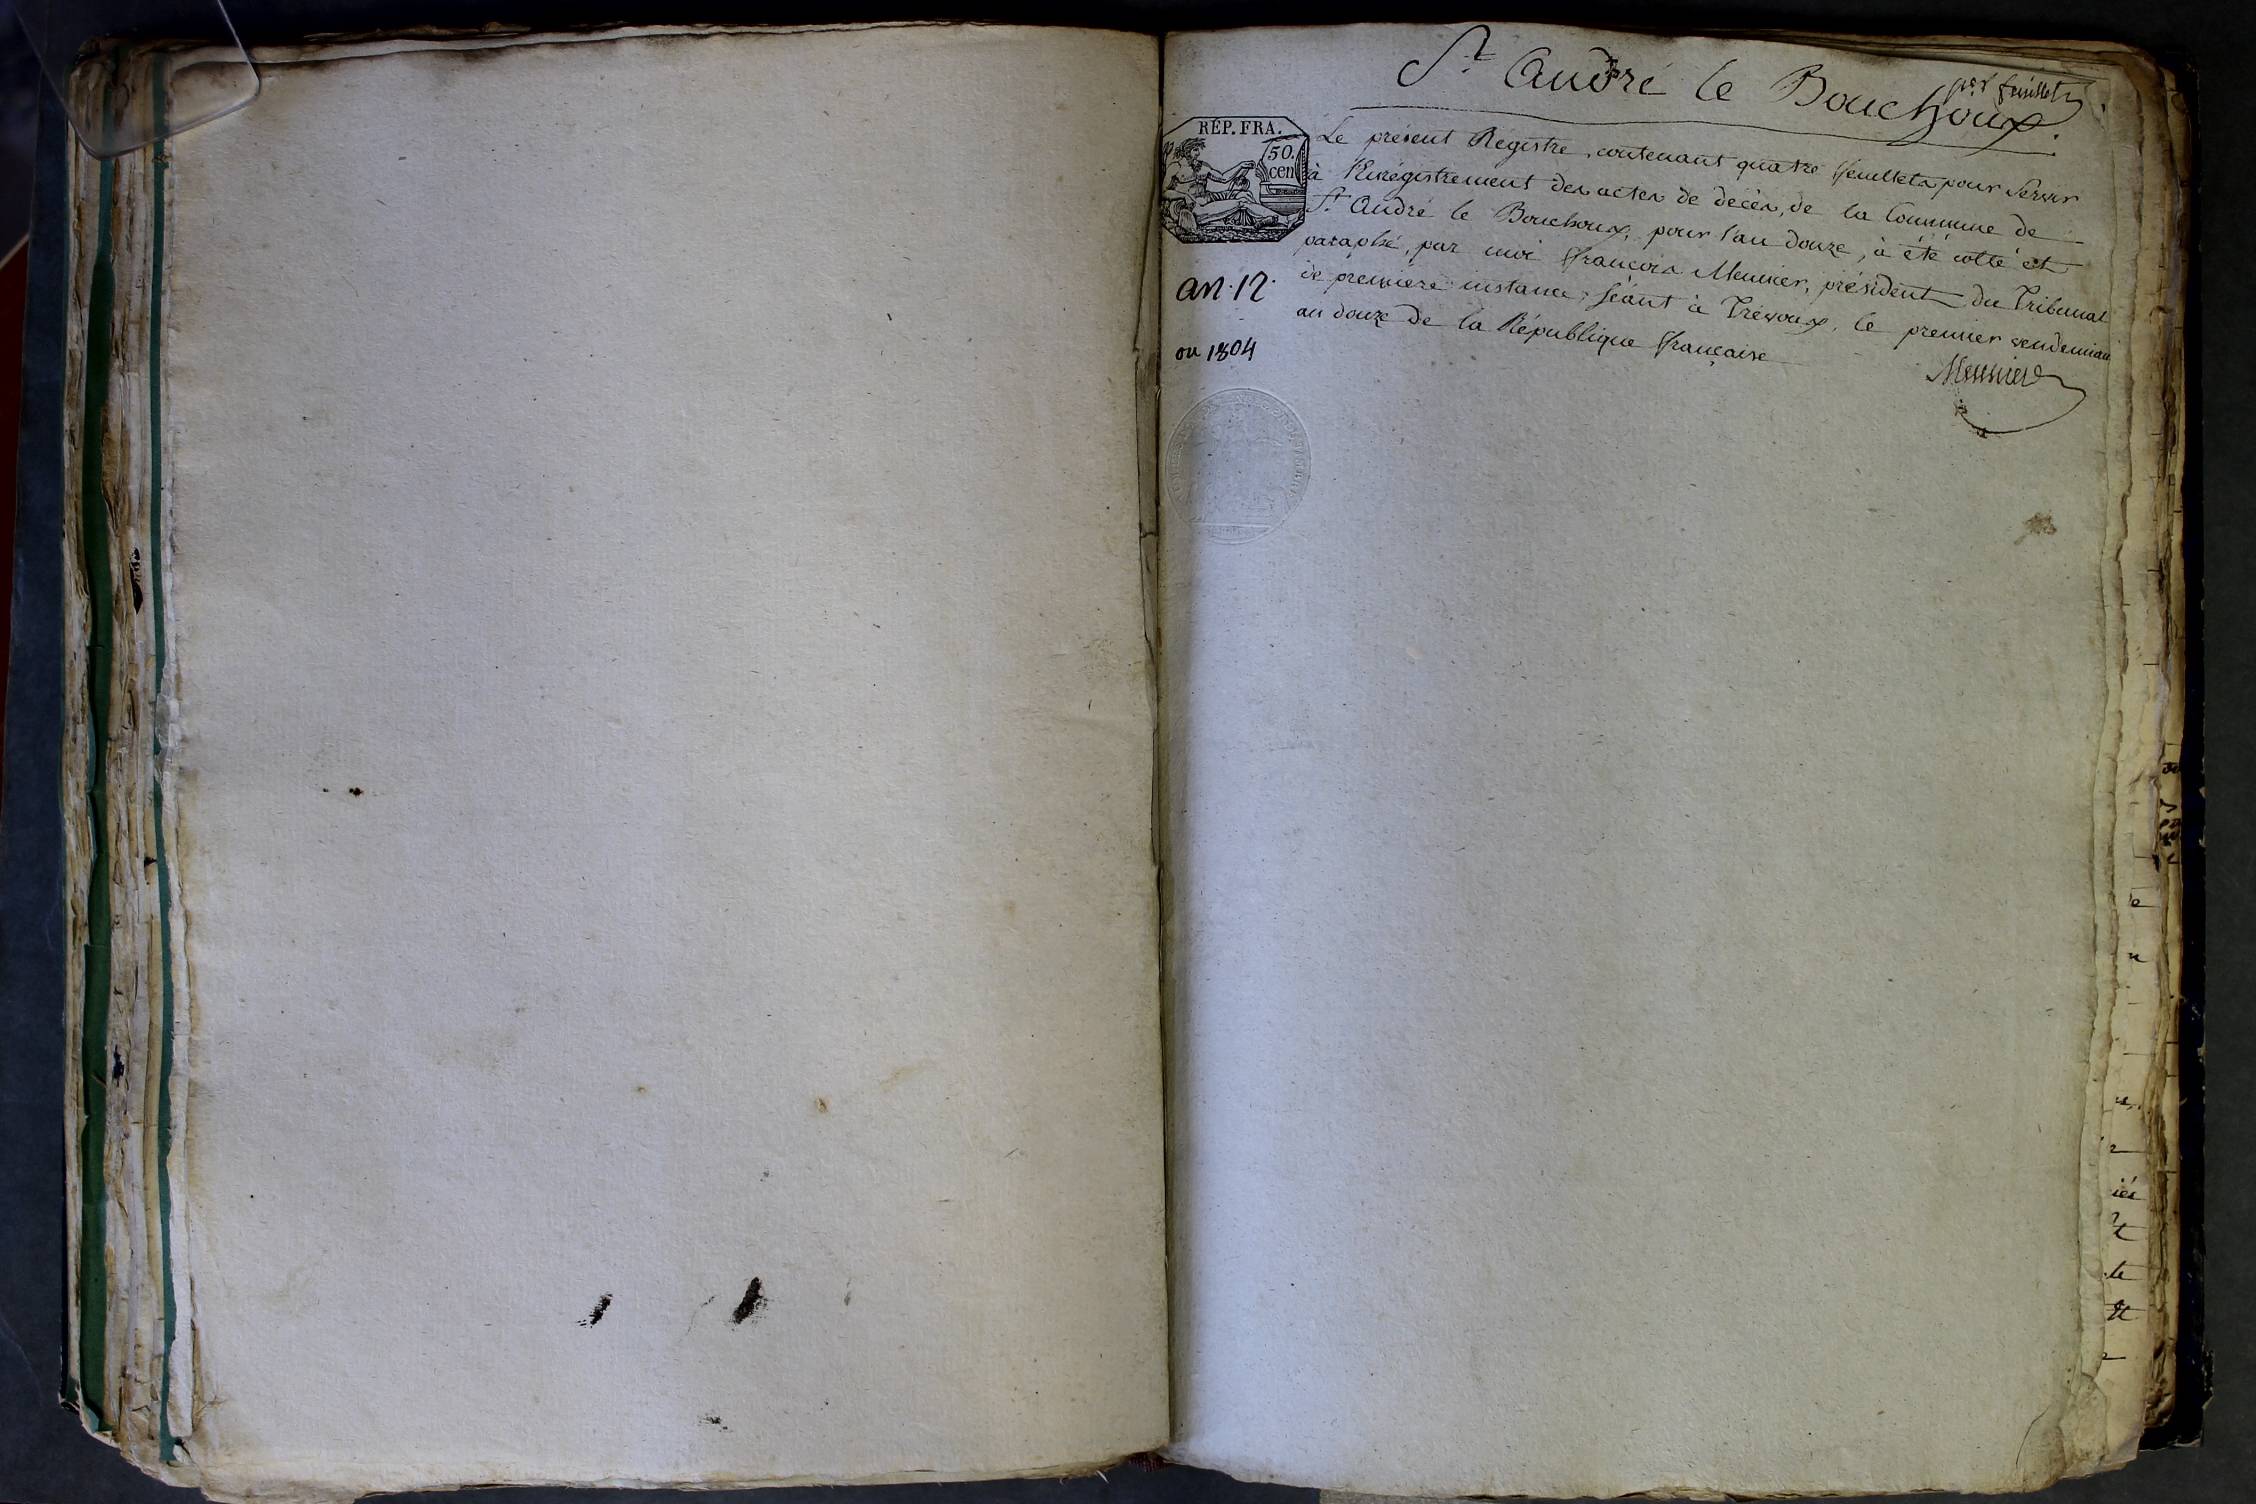 St. André le Bouchoux.
per feuillet
RÉP. FRA.
50.
cen
Le présent Régistre, contenant quatre feuillets pour Servir
à l'Enrégistrement des actes de décès, de la Commune de
St. André le Bouchoux, pour l'an douze, à été cotté et
paraphé, par moi François Meunier, président du Tribunal
de première instance, séant à Trévoux, le premier vendemiaire
an douze de la République française
Meunier
an. 12.
ou 1804